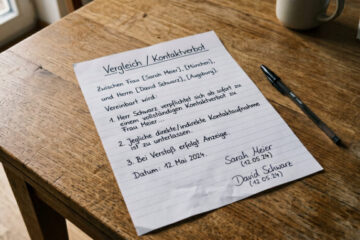 Vergleich / Kontaktverbot
Zwischen Frau [Sarah Meier], [München],
und Herrn [David Schwarz], [Augsburg].
Vereinbart wird:
1. Herr Schwarz verpflichtet sich ab sofort zu
einem vollständigen Kontaktverbot zu
Frau Meier...
2. Jegliche direkte/indirekte Kontaktaufnahme
ist zu unterlassen.
3. Bei Verstoß erfolgt Anzeige.
Datum: 12. Mai 2024.
Sarah Meier
(12.05.24)
David Schwarz
(12.05.24)